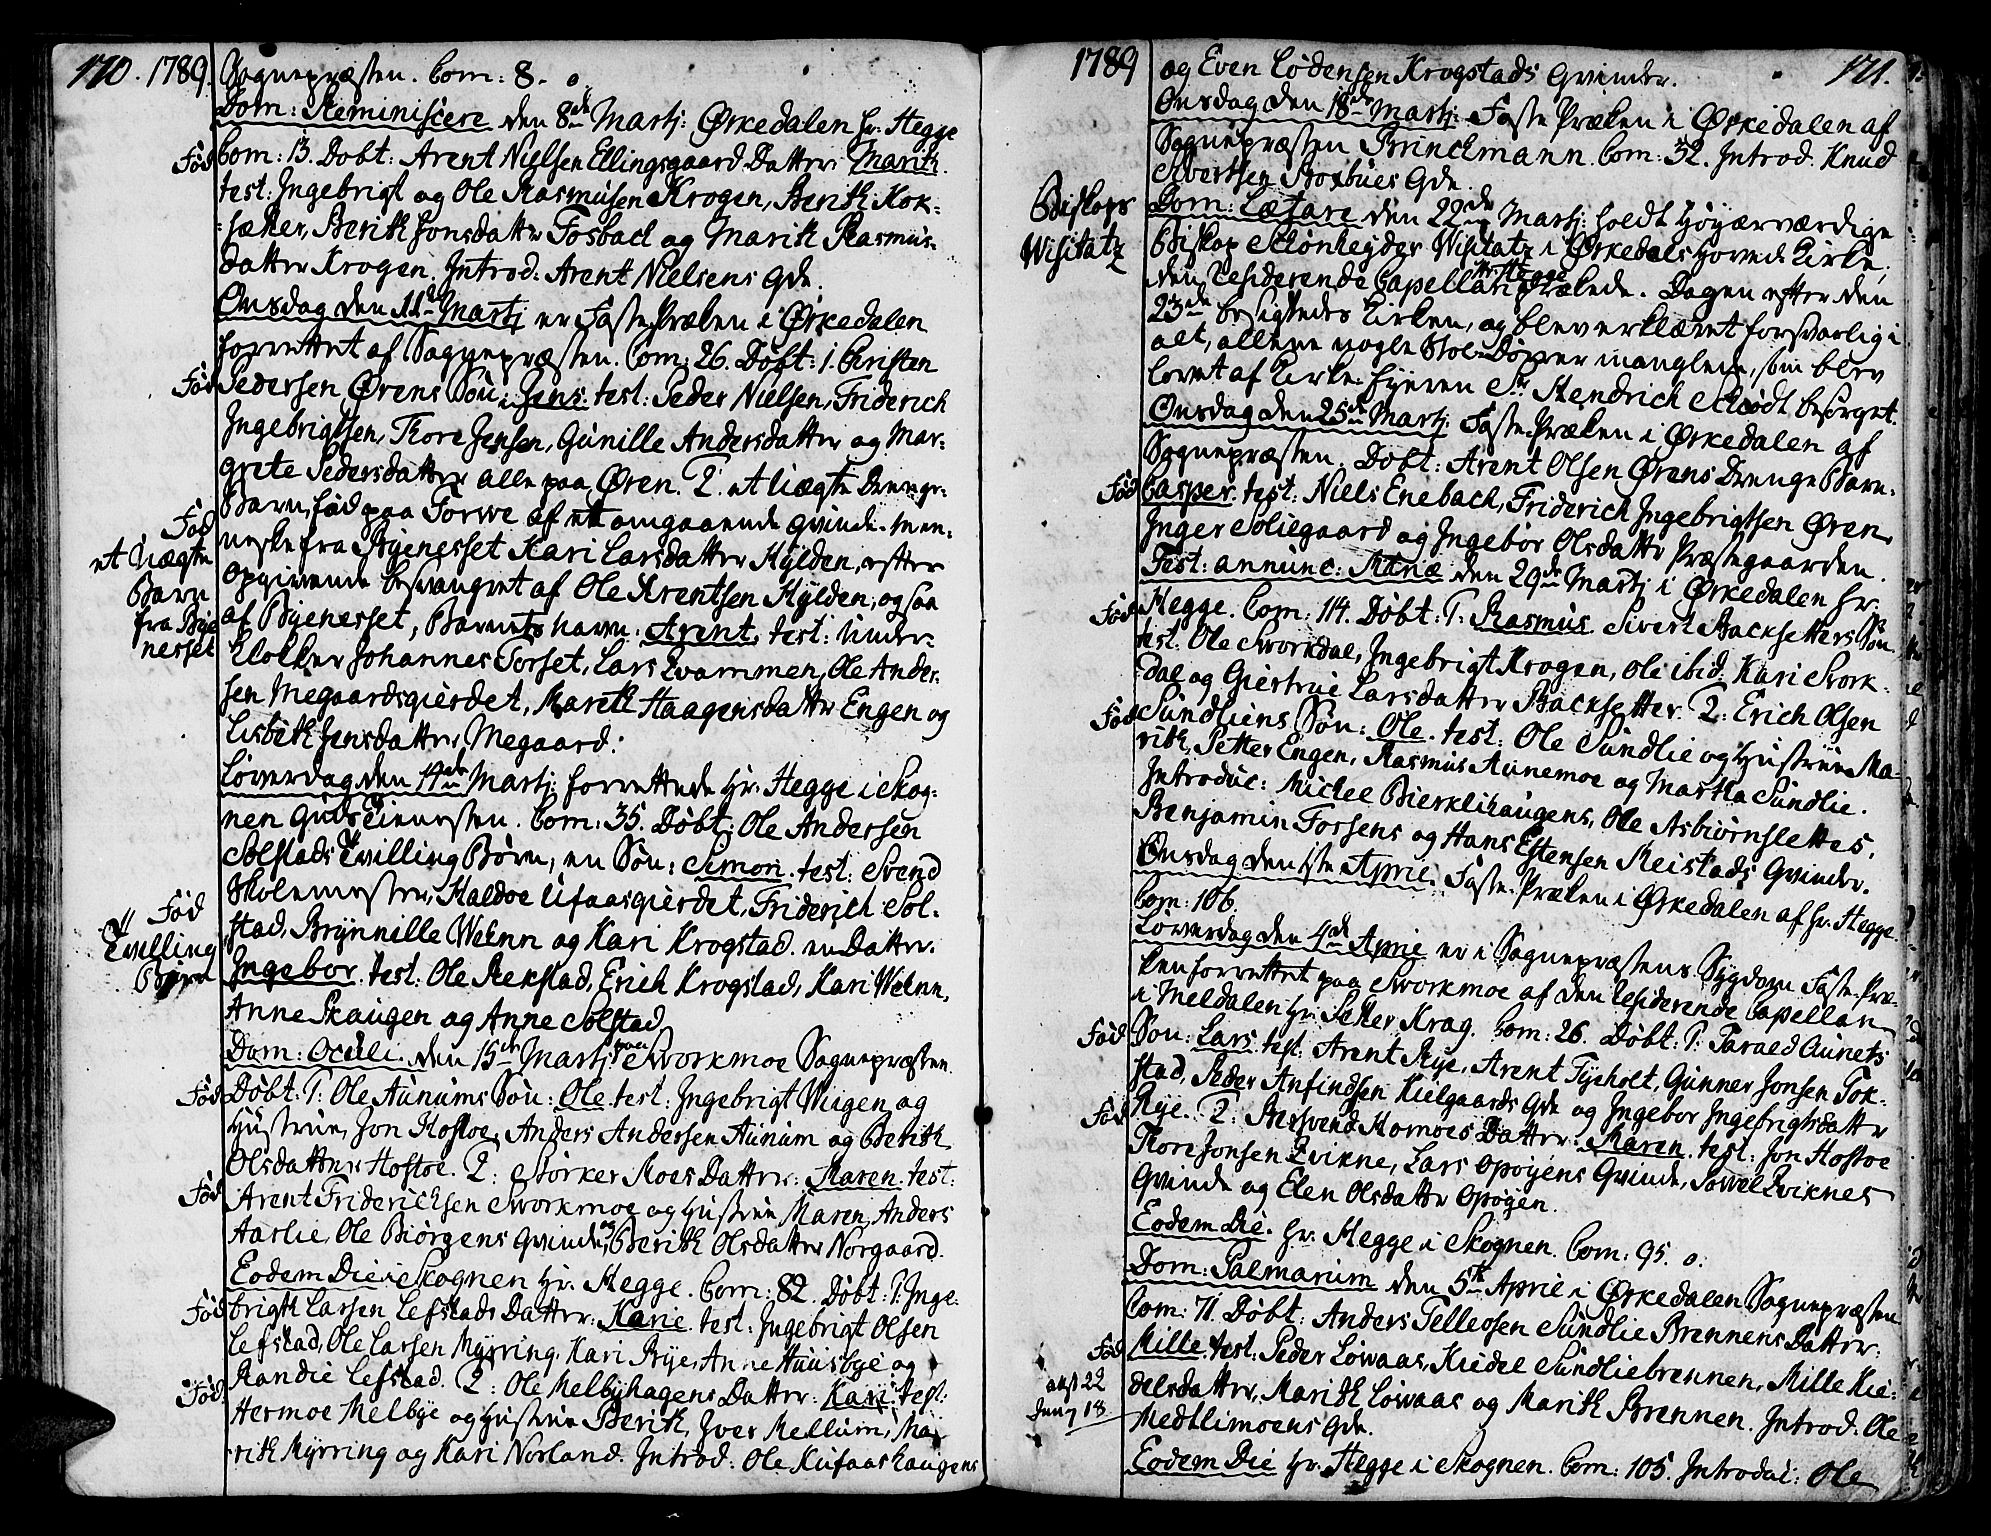 170. 1789. Sognepræsten. Com: 8. o.
Dom: Reminiscere den 8de Martj: Ørkedalen hr: Hegge
Fød Com: 13. Døbt: Arent Nielsen Ellingsgaard Datter Marith.
test: Ingebrigt og Ole Rasmusen Krogen, Berith Kok-
hæker, Berith Jonsdatter Fosbach og Marith Rasmus-
datter Krogen. Introd: Arent Nielsens Qde.
Onsdag den 11te Martj er Faste-Præken i Ørkedalen
forrettet af Sognepræsten. Com: 26. Døbt: 1. Christen
Fød Pedersen Ørens Søn: Jens. test: Peder Nielsen, Friderich
Ingebrigtsen, Thore Jensen, Gunille Andersdatter og Mar-
grete Pedersdatter alle paa Øren. 2. et Uægte Drenge-
Fød Barn, fød paa Torwe af et omgaaende Qvinde-Men-
et Uægte neske fra Byenesset Kari Larsdatter Hylden, efter
Barn Opgivende besvangret af Ole Arentsen Hylden, ogsaa
fra Bye af Byenesset, Barnets navn: Arent. test: Under-
nesset Klokker Johannes Torset, Lars Qvammen, Ole Ander-
sen Megaardsgierdet, Marith Haagensdatter Engen og
Lisbeth Jensdatter Megaard.
Løverdag den 14de Martj: forrettede Hr: Hegge i Skog-
nen Guds Tienesten. Com: 35. Døbt: Ole Andersen
Solstads Tvilling Børn, en Søn: Simon. test: Svend
Fød Skolemester, Haldoe Ufaasgierdet, Friderich Sol-
Tvilling stad, Brynnille Weenn og Kari Krogstad. en Datter.
Børn Ingebor. test: Ole Rekstad, Erich Krogstad, Kari Weenn,
Anne Skaugen og Anne Solstad.
Dom: Oculi. den 15de Martj paa Svorkmoe Sognepræsten.
Fød Døbt: 1. Ole Aunums Søn: Ole. test: Ingebrigt Wuigen og
Hustrue, Jon Hostoe, Anders Andersen Aunum og Berith
Olsdatter Hostoe. 2: Størker Moes Datter: Maren. test:
Fød Arent Friderichsen Svorkmoe og Hustrue Maren, Anders
Aarlie, Ole Biørgens Qvinde, og Berith Olsdatter Norgaard.
Eodem Die i Skognen Hr. Hegge. Com: 82. Døbt: 1. Inge-
Fød brigth Larsen Lefstads Datter: Karie. test: Ingebrigt Olsen
Lefstad, Ole Larsen Myrring, Kari Rye, Anne Huusbye og
Randie Lefstad. 2: Ole Melbyhagens Datter: Kari. test:
Fød Hermoe Melbye og Hustrue Berith, Iver Mellum, Ma-
rith Myrring og Kari Norland. Introd: Ole Kufaashaugens
1789 og Even Lødensen Krogstads Qvinder. 171.
Onsdag den 18de Martj: Faste-Præken i Ørkedalen af
Sognepræsten Brinckmann. Com: 32. Introd. Knud
Sivertsen Boxbues Qde.
Biskops Dom: Lætare den 22de Martj: holdt Høyærværdige
Wisitatz Biskop Schønheyder Wisitatz i Ørkedals Hoved-Kirke;
den Residerende Capellan Hr. Hegge prækede. Dagen efter den
23de besigtedes Kirken, og blev erklæret forsvarlig i
alt, allene nogle Stoel-Dørrer manglede, som blev
lovet af Kirke-Eyeren Sr. Hendrich Schiødt besørget.
Onsdag den 25de Martj. Faste-Præken i Ørkedalen af
Sognepræsten. Døbt: Arent Olsen Ørens Drenge Barn.
Fød Casper. test: Niels Enebach, Friderich Ingebrigtsen Øren,
Inger Soliegaard og Ingebor Olsdatter Præstegaarden.
Fest: annunc: Mariæ den 29de Martj i Ørkedalen hr:
Fød Hegge. Com: 114. Døbt: 1. Rasmus. Sivert Backsetters Søn.
test: Ole Svorkdal, Ingebrigt Krogen, Ole ibid. Kari Svork-
dal og Giertrue Larsdatter Backsetter. 2: Erich Olsen
Fød Sundliens Søn: Ole. test: Ole Sundlie og Hustrue Ma-
rith, Petter Engen, Rasmus Aunemoe og Martha Sundlie.
Introduc: Michel Bierklihaugens, Ole Asbiørnslettes,
Benjamin Forsens og Hans Estensen Reistads Qvinder.
Onsdag den 1ste April. Faste-Præken i Ørkedalen af hr. Hegge.
Com: 106.
Løverdag den 4de April er i Sognepræstens Sygdom Faste-Præ-
ken forrettet paa Svorkmoe af den residerende Capellan
i Meldalen hr. Peter Krag. Com: 26. Døbt: 1. Tarald Aunets
Fød Søn: Lars. test: Arent Rye, Arent Fyeholt, Gunner Jonsen Tok-
stad, Peder Anfindsen Kielgaards Qde og Ingebor Ingebrigtsdatter
Fød Rye. 2: Svend Homoes Datter: Maren. test: Jon Hostoe
Thore Jonsen Kvikne, Lars Opøyens Qvinde, Powel Kviknes
Qvinde og Elen Olsdatter Opøyen.
Eodem Die. hr. Hegge i Skognen. Com: 95. o.
Dom: Palmarum den 5te April i Ørkedalen Sognepræsten
Com: 71. Døbt: Anders Tellefsen Sundlie Brennens Datter:
Fød Mille. test: Peder Lowaas, Kiedel Sundliebrennen, Mille Kie-
delsdatter, Marith Lowaas og Marith Brennen. Introd: Ole
Medtlimoens Qde.
Eodem Die hr. Hegge i Skognen. Com: 105. Introduc: Ole